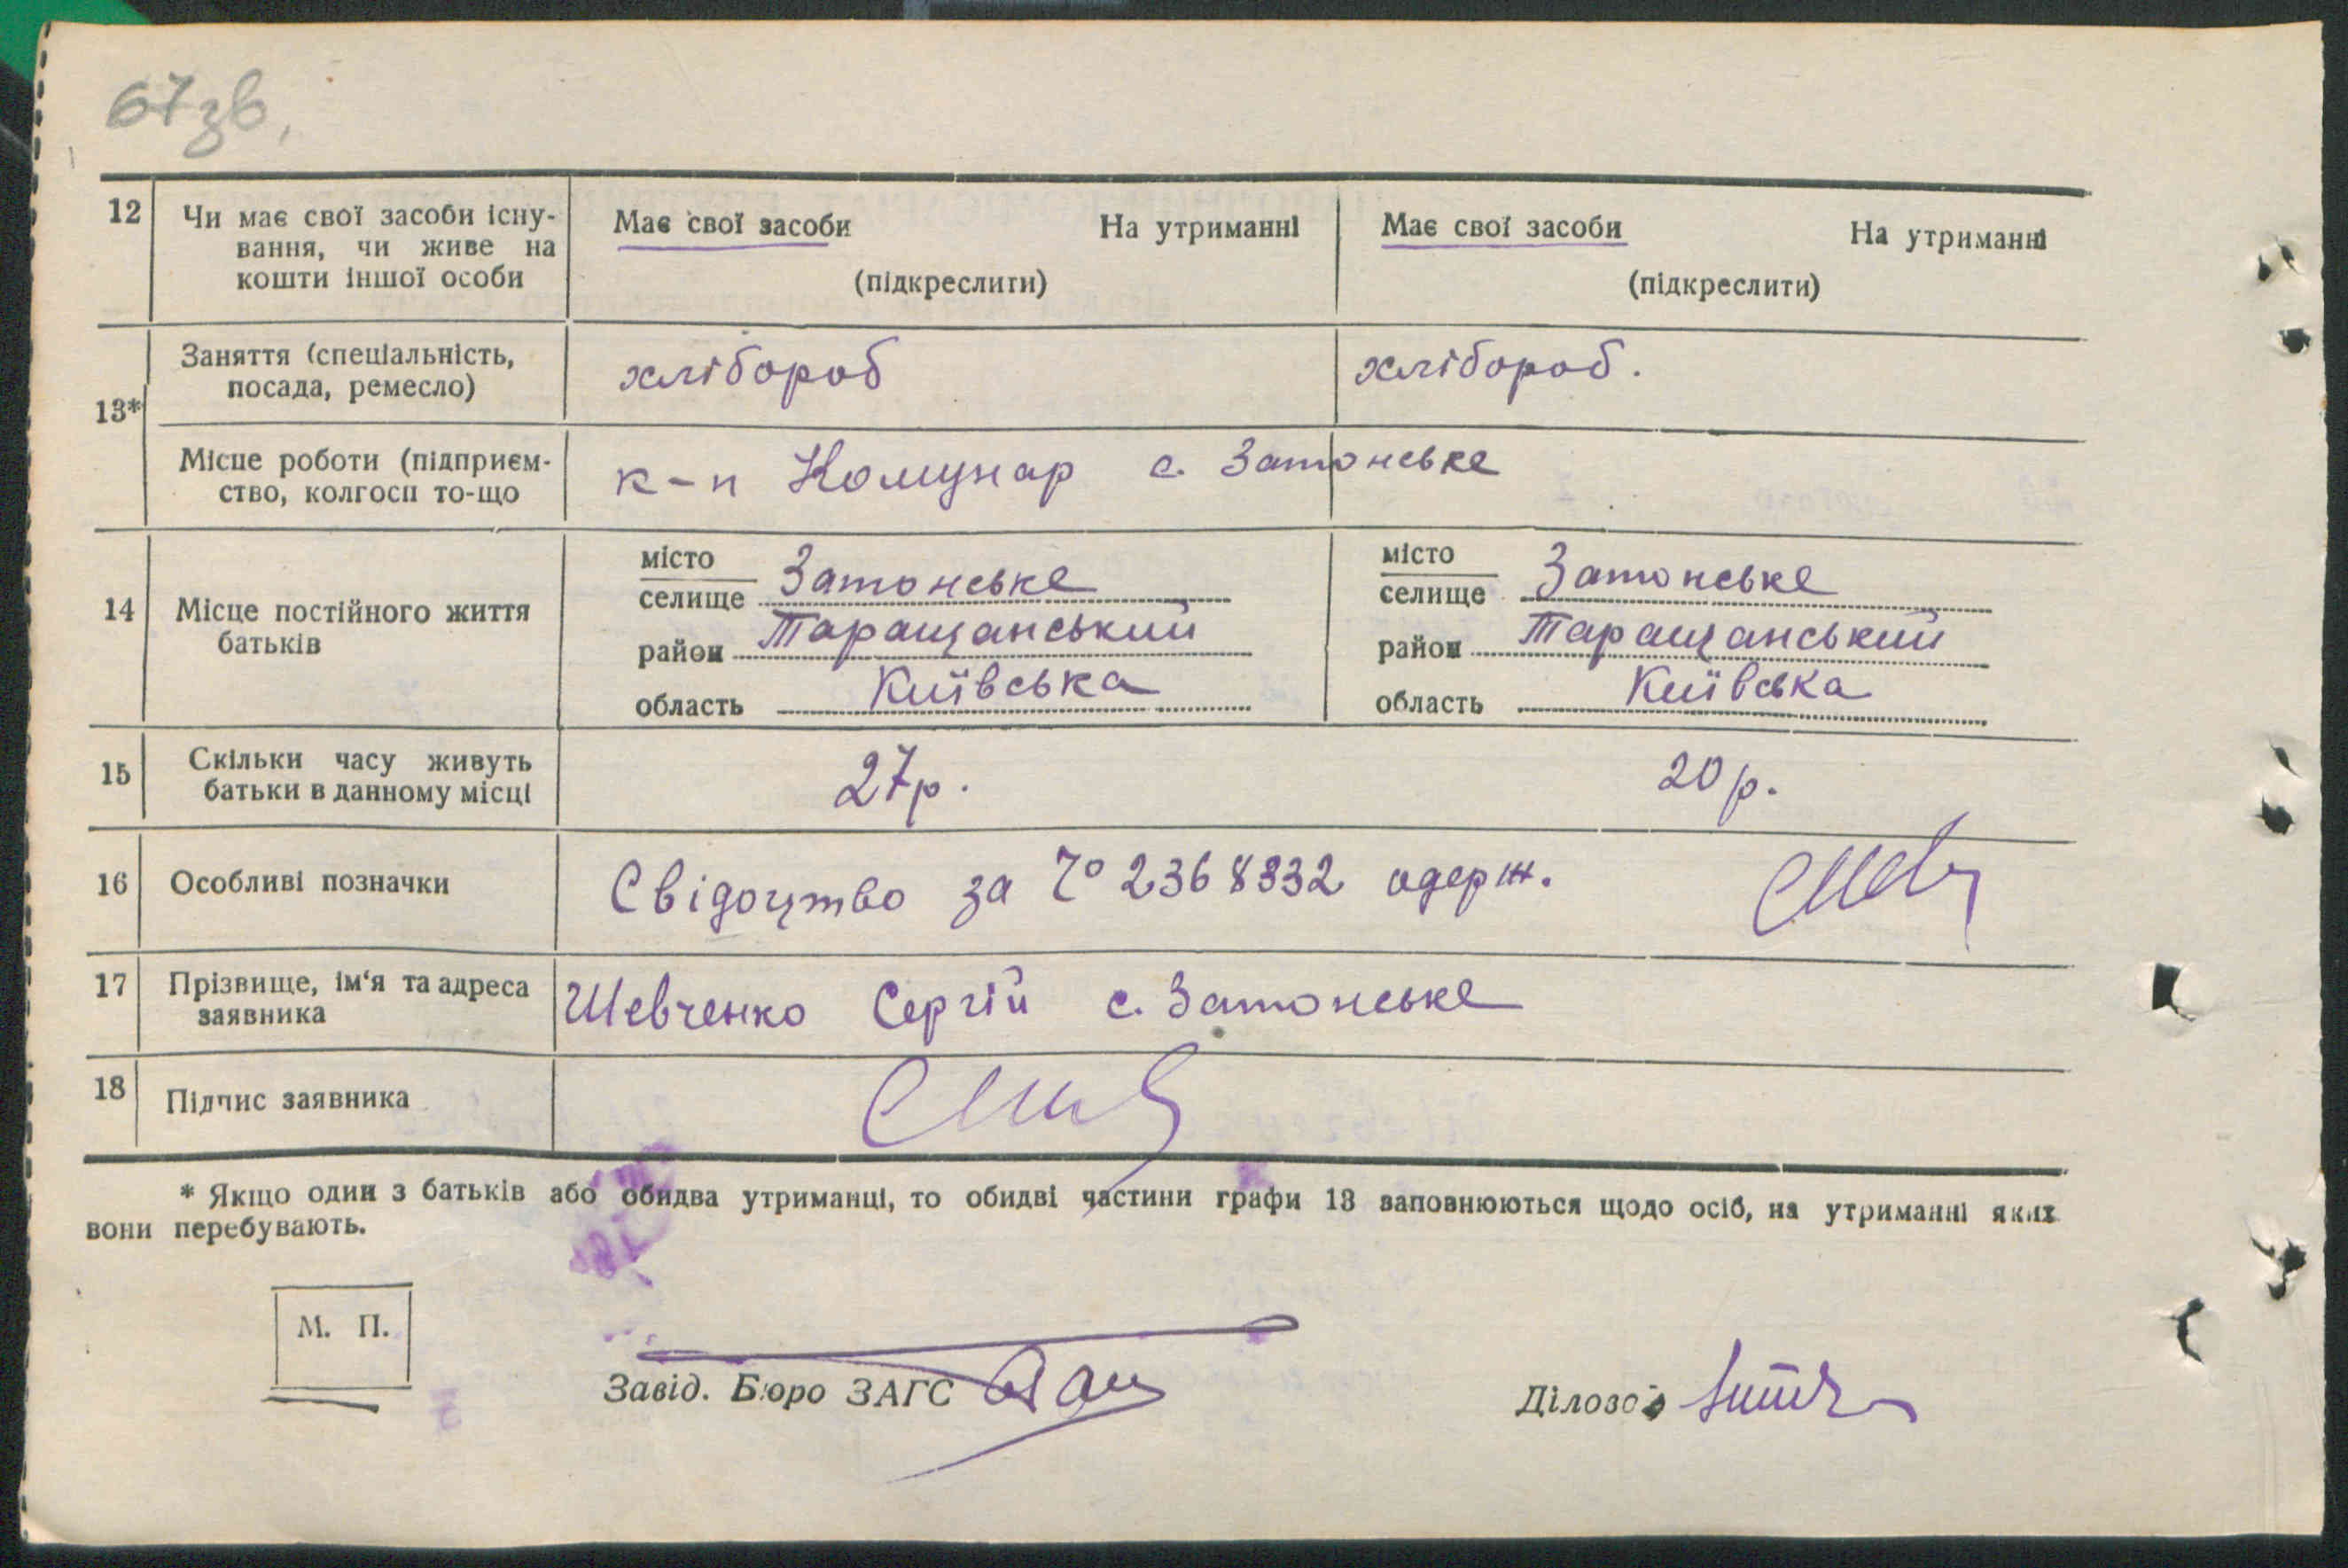 67зв.
12 Чи має свої засоби існу-
вання, чи живе на
кошти іншої особи
Має свої засоби На утриманні
(підкреслити)
Має свої засоби На утриманні
(підкреслити)
13*
Заняття (спеціальність,
посада, ремесло)
хлібороб
хлібороб.
Місце роботи (підприєм-
ство, колгосп то-що
к-п Комунар с. Затонське
14 Місце постійного життя
батьків
місто
селище Затонське
район Таращанський
область Київська
місто
селище Затонське
район Таращанський
область Київська
15 Скільки часу живуть
батьки в данному місці
27р.
20р.
16 Особливі позначки
Свідоцтво за № 2368332 одерж.
17 Прізвище, ім'я та адреса
заявника
Шевченко Сергій с. Затонське
18 Підпис заявника
* Якщо один з батьків або обидва утриманці, то обидві частини графи 13 заповнюються щодо осіб, на утриманні яких
вони перебувають.
М. П.
Завід. Бюро ЗАГС
Діловод